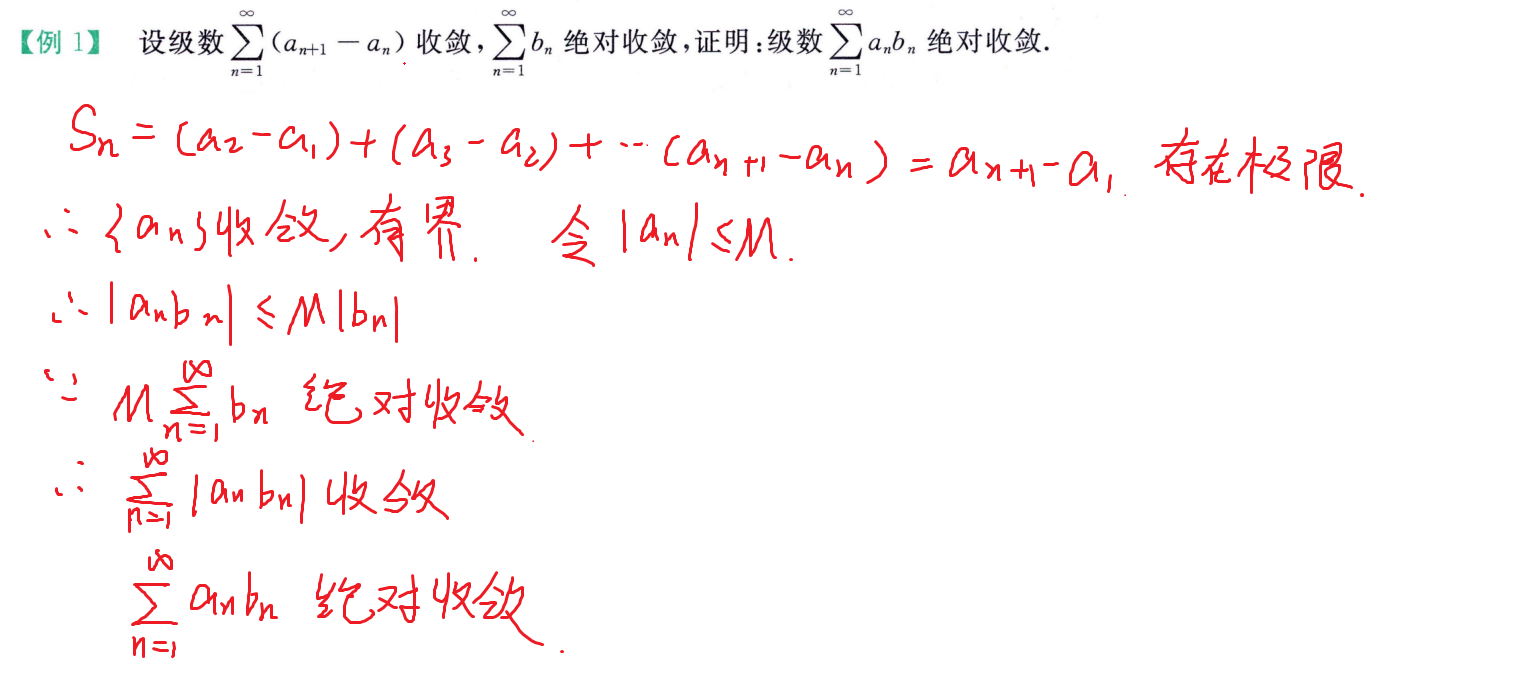 【例 1】 设级数∑_{n=1}^{∞}(a_{n+1} − a_n) 收敛,∑_{n=1}^{∞}b_n 绝对收敛,证明:级数∑_{n=1}^{∞}a_nb_n 绝对收敛.
S_n = (a_2-a_1)+(a_3-a_2)+…(a_{n+1}-a_n) = a_{n+1}-a_1 存在极限.
∴ {a_n}收敛,有界. 令 |a_n| ≤ M.
∴ |a_nb_n| ≤ M|b_n|
∵ M∑_{n=1}^{∞}b_n 绝对收敛
∴ ∑_{n=1}^{∞}|a_nb_n| 收敛
∑_{n=1}^{∞}a_nb_n 绝对收敛.